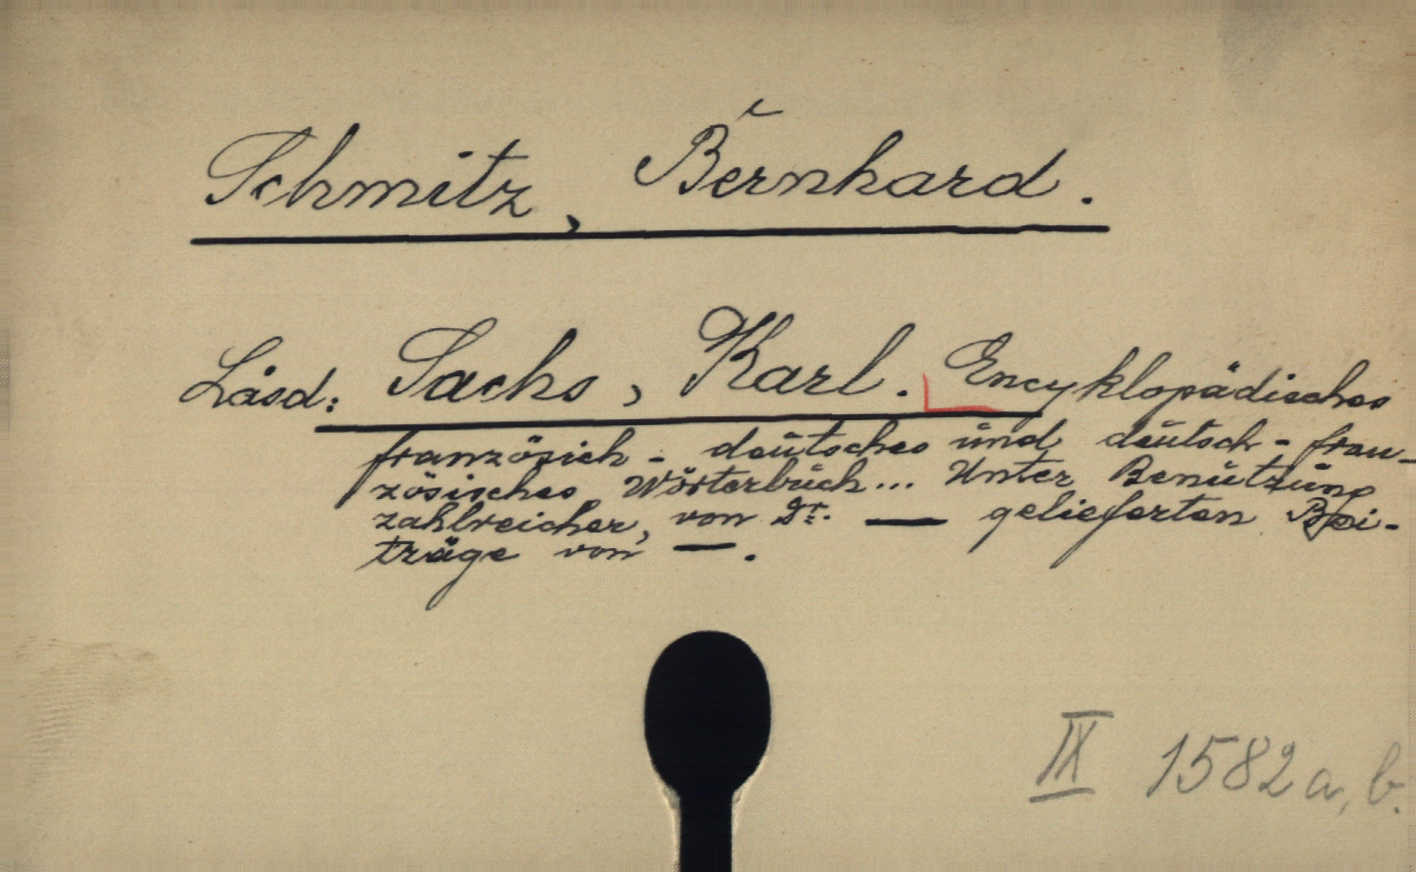 Schmitz, Bernhard.
Lásd: Sachs, Karl. Encyklopädisches
französich - deutsches und deutsch - fran-
zösisches Wörterbuch... Unter Benützung
zahlreicher, von Dr. — gelieferten Bei-
träge von —.
IX 1582 a, b.